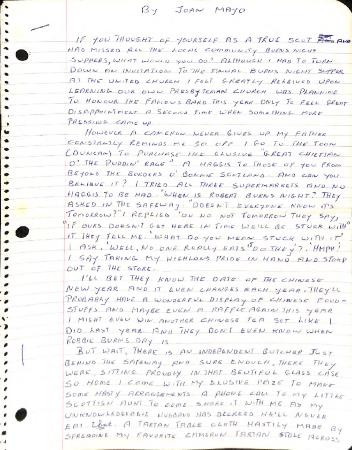 BY JOAN MAYO
IF YOU THOUGHT OF YOURSELF AS A TRUE SCOT AND
HAS MISSED ALL THE LOCAL COMMUNITY BURNS NIGHT
SUPPERS, WHAT WOULD YOU DO? ALTHOUGH I HAD TO TURN
DOWN AN INVITATION TO THE ANNUAL BURNS NIGHT SUPPER
AT THE UNITED CHURCH I FELT GREATLY RELIEVED UPON
LEARNING OUR OWN PRESBYTERIAN CHURCH WAS PLANNING
TO HONOUR THE FAMOUS BARD THIS YEAR ONLY TO FEEL GREAT
DISAPPOINTMENT A SECOND TIME WHEN SOMETHING MORE
PRESSING CAME UP.
HOWEVER A CAMERON NEVER GIVES UP MY FATHER
CONSTANTLY REMINDS ME SO OFF I GO TO THE TOWN
(DUNCAN) TO PURCHASE THE ELUSIVE "GREAT CHIEFTAN
O' THE PUDDIN' RACE" A HAGGIS TO THOSE OF YOU FROM
BEYOND THE BORDERS O' BONNIE SCOTLAND. AND CAN YOU
BELIEVE IT? I TRIED ALL THREE SUPERMARKETS AND NO
HAGGIS TO BE HAD. "WHEN IS ROBERT BURNS NIGHT?" THEY
ASKED IN THE SAFEWAY. "DOESN'T EVERYONE KNOW IT'S
TOMORROW?" I REPLIED "OH NO NOT TOMORROW THEY SAY,
IF OURS DOESN'T GET HERE IN TIME WE'LL BE STUCK WITH
IT THEY TELL ME. "WHAT DO YOU MEAN STUCK WITH IT"
I ASK, "WELL, NO ONE REALLY EATS DO THEY?" "HMPH!"
I SAY TAKING MY HIGHLAND PRIDE IN HAND AND STOMP
OUT OF THE STORE.
I'LL BET THEY KNOW THE DATE OF THE CHINESE
NEW YEAR AND IT EVEN CHANGES EACH YEAR. THEY'LL
PROBABLY HAVE A WONDERFUL DISPLAY OF CHINESE FOOD-
STUFFS AND MAYBE EVEN A RAFFLE AGAIN THIS YEAR
I MIGHT EVEN WIN ANOTHER CHINESE TEA SET LIKE I
DID LAST YEAR AND THEY DON'T EVEN KNOW WHEN
ROBBIE BURNS DAY IS.
BUT WAIT, THERE IS AN INDEPENDENT BUTCHER JUST
BEHIND THE SAFEWAY AND SURE ENOUGH, THERE THEY
WERE SITTING PROUDLY IN THAT BEUTIFUL GLASS CASE
SO HOME I COME WITH MY ELUSIVE PRIZE TO MAKE
SOME HASTY ARRANGEMENTS. A PHONE CALL TO MY LITTLE
SCOTTISH AUNT TO COME SHARE IT WITH ME AS MY
UNKNOWLEDGEABLE HUSBAND HAS DECREED HE'LL NEVER
EAT A TARTAN TABLE CLOTH HASTILY MADE BY
SPREADING MY FAVORITE CAMERON TARTAN STOLE ACROSS